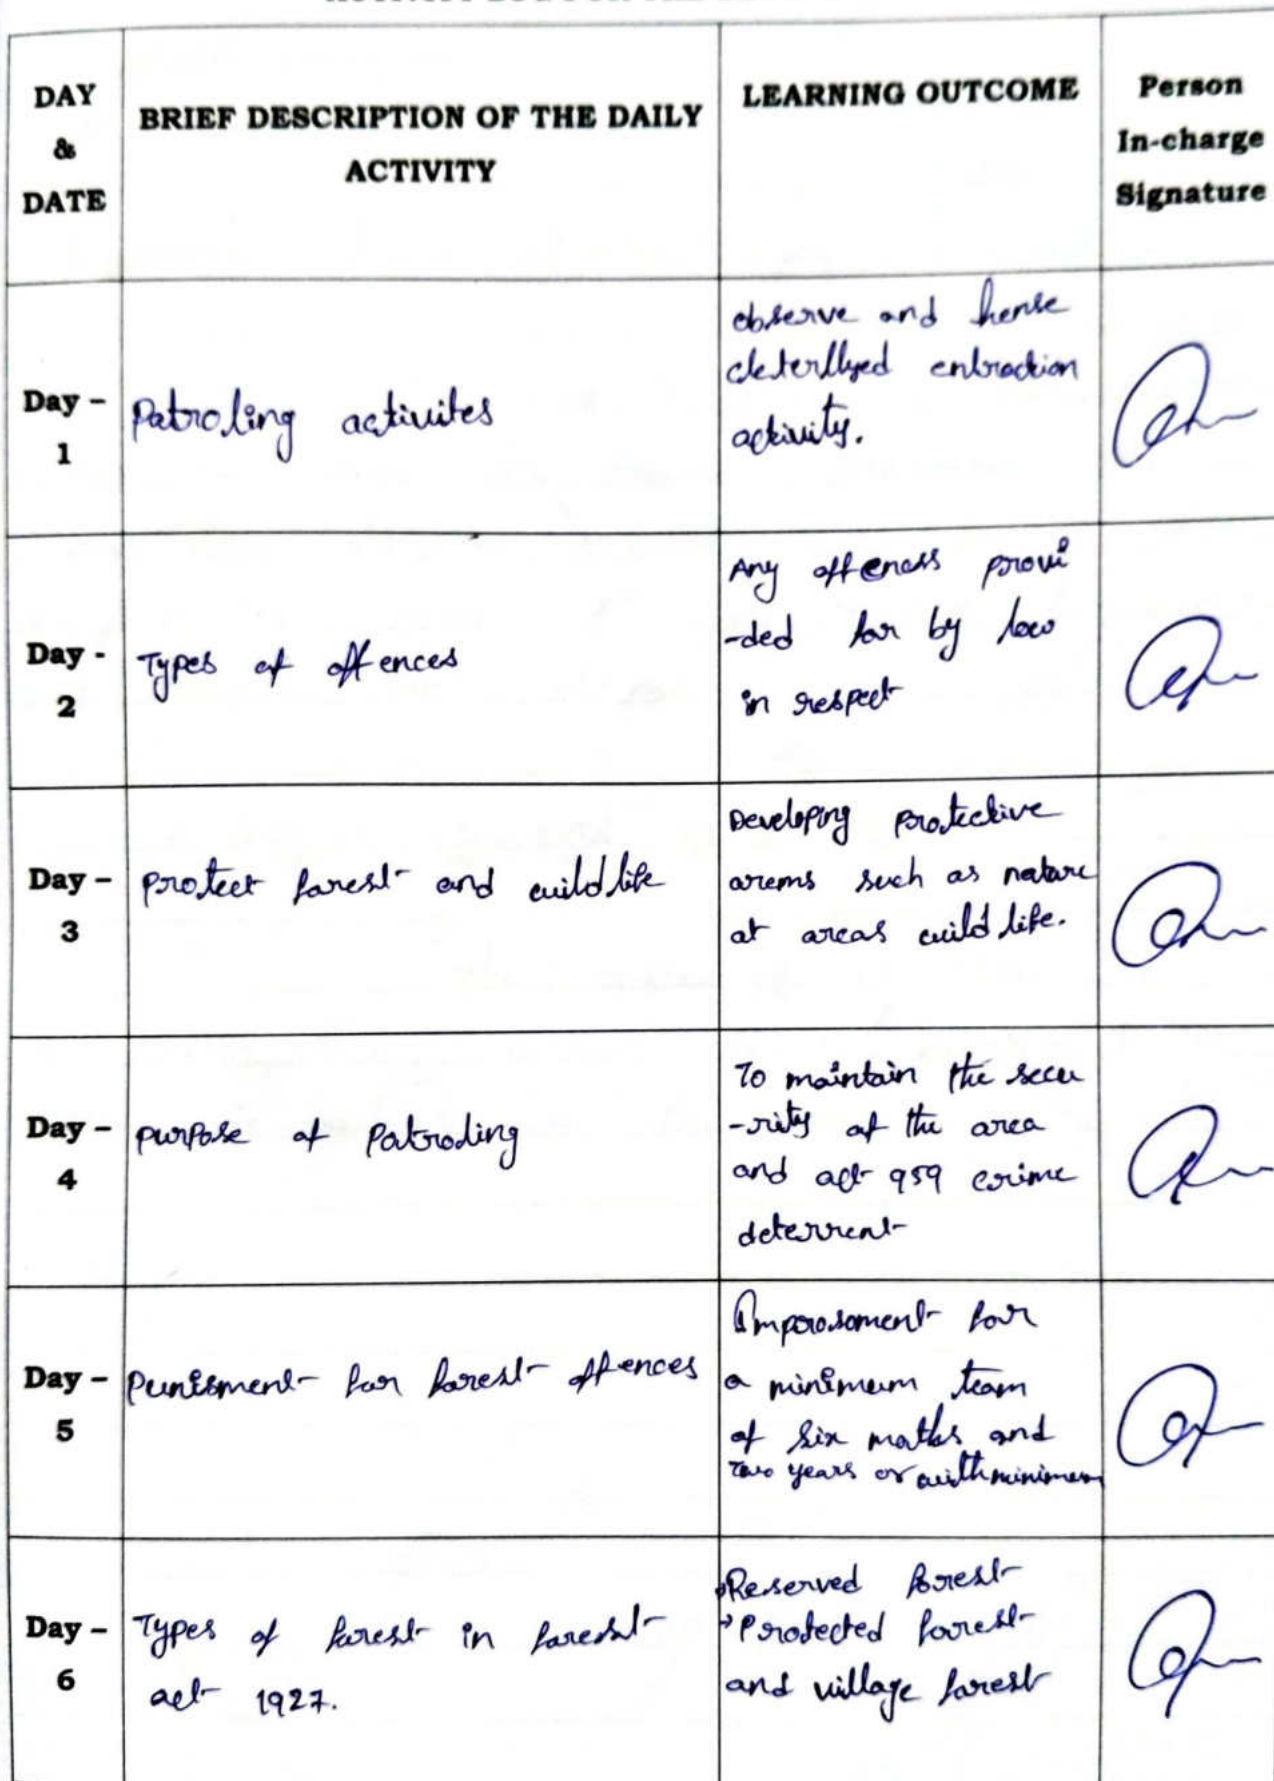 DAY
&
DATE
BRIEF DESCRIPTION OF THE DAILY
ACTIVITY
LEARNING OUTCOME
Person
In-charge
Signature
Day -
1
Patroling activites
observe and hense
activity.
Day -
2
Types of offences
Any offeness provi
-ded for by low
in respect
Day -
3
protect forest and wildlife
Developing protective
arems such as nature
at areas wild life.
Day -
4
purpose of Patroding
To maintain the secu
-rity of the area
and act 959 crime
deterrent
Day -
5
Punisment for forest offences
Imporosoment for
a minimum team
of six moths and
Two years or with minimum
Day -
6
Types of forest in forest
act 1927.
Reserved Forest
Protected forest
and village forest